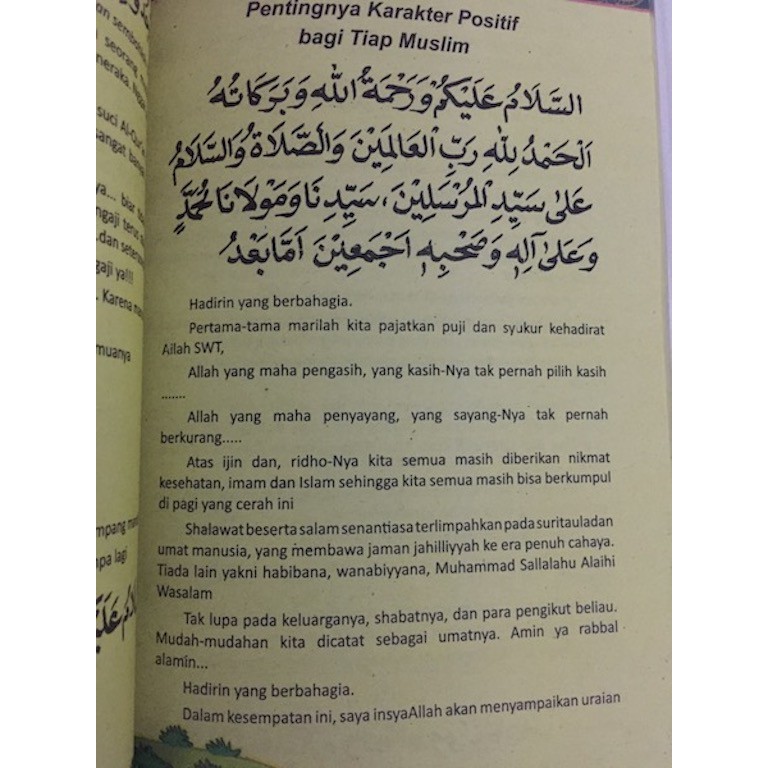 Pentingnya Karakter Positif
bagi Tiap Muslim
السَّلَامُ عَلَيْكُمْ وَرَحْمَةُ اللّٰهِ وَبَرَكَاتُهُ
اَلْحَمْدُ لِلّٰهِ رَبِّ الْعَالَمِيْنَ وَالصَّلَاةُ وَالسَّلَامُ
عَلىٰ سَيِّدِ الْمُرْسَلِيْنَ، سَيِّدِنَا وَمَوْلَانَا مُحَمَّدٍ
وَعَلىٰ آلِهٖ وَصَحْبِهٖ اَجْمَعِيْنَ اَمَّا بَعْدُ
Hadirin yang berbahagia.
Pertama-tama marilah kita pajatkan puji dan syukur kehadirat
Allah SWT,
Allah yang maha pengasih, yang kasih-Nya tak pernah pilih kasih
.......
Allah yang maha penyayang, yang sayang-Nya tak pernah
berkurang.....
Atas ijin dan, ridho-Nya kita semua masih diberikan nikmat
kesehatan, imam dan Islam sehingga kita semua masih bisa berkumpul
di pagi yang cerah ini
Shalawat beserta salam senantiasa terlimpahkan pada suritauladan
umat manusia, yang membawa jaman jahilliyyah ke era penuh cahaya.
Tiada lain yakni habibana, wanabiyyana, Muhammad Sallalahu Alaihi
Wasalam
Tak lupa pada keluarganya, shabatnya, dan para pengikut beliau.
Mudah-mudahan kita dicatat sebagai umatnya. Amin ya rabbal
alamin...
Hadirin yang berbahagia.
Dalam kesempatan ini, saya insyaAllah akan menyampaikan uraian